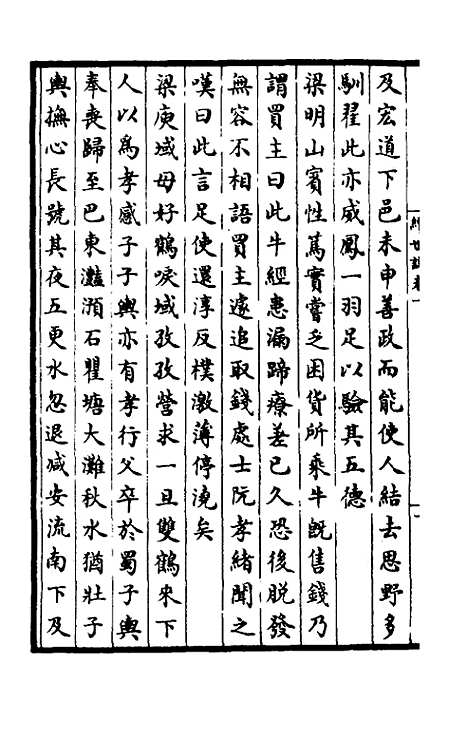 及宏道下邑未申善政而能使人結去思野多
馴翟此亦威鳳一羽足以驗其五德
梁明山賓性篤實嘗乏困貨所乘牛既售錢乃
謂買主曰此牛經患漏蹄療差已久恐後脱發
無容不相語買主遽追取錢處士阮孝緒聞之
嘆曰此言足使還淳反樸激薄停澆矣
梁庾域母好鶴唳域孜孜營求一旦雙鶴來下
人以爲孝感子子輿亦有孝行父卒於蜀子輿
奉喪歸至巴東灩澦石瞿塘大灘秋水猶壯子
輿撫心長號其夜五更水忽退減安流南下及